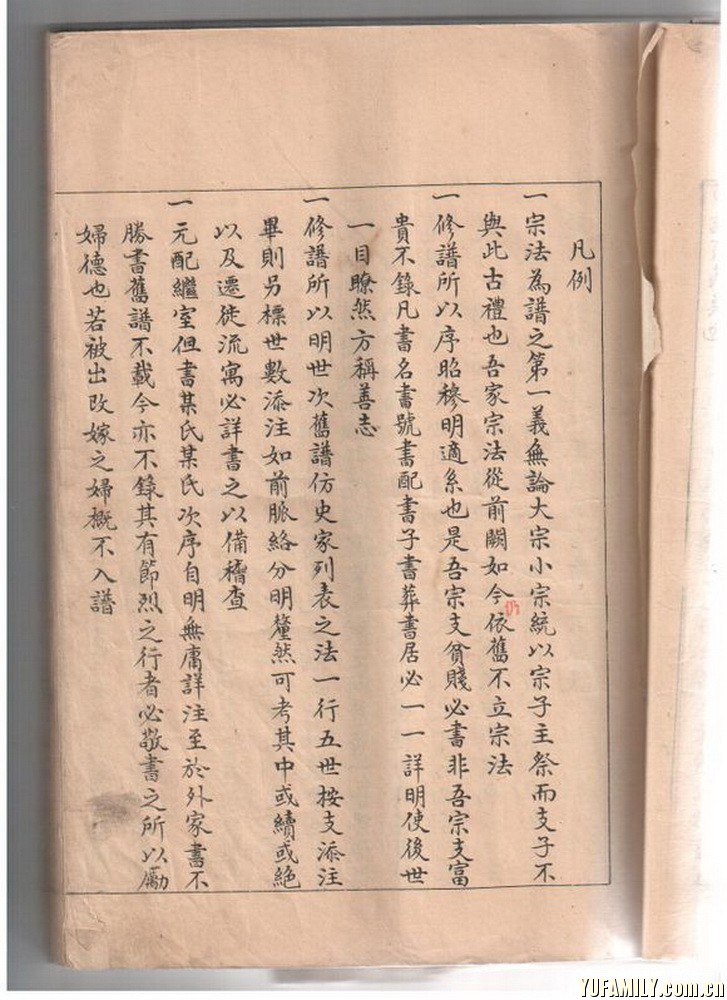 凡例
一宗法為譜之第一義無論大宗小宗統以宗子主祭而支子不
與此古禮也吾家宗法從前闕如今仍依舊不立宗法
一修譜所以序昭穆明適系也是吾宗支貧賤必書非吾宗支富
貴不錄凡書名書號書配書子書葬書居必一一詳明使後世
一目瞭然方稱善志
一修譜所以明世次舊譜仿史家列表之法一行五世按支添注
畢則另標世數添注如前脈絡分明釐然可考其中或續或絕
以及遷徙流寓必詳書之以備稽查
一元配繼室但書某氏某氏次序自明無庸詳注至於外家書不
勝書舊譜不載今亦不錄其有節烈之行者必敬書之所以勵
婦德也若被出改嫁之婦概不入譜
YUFAMILY.com.cn